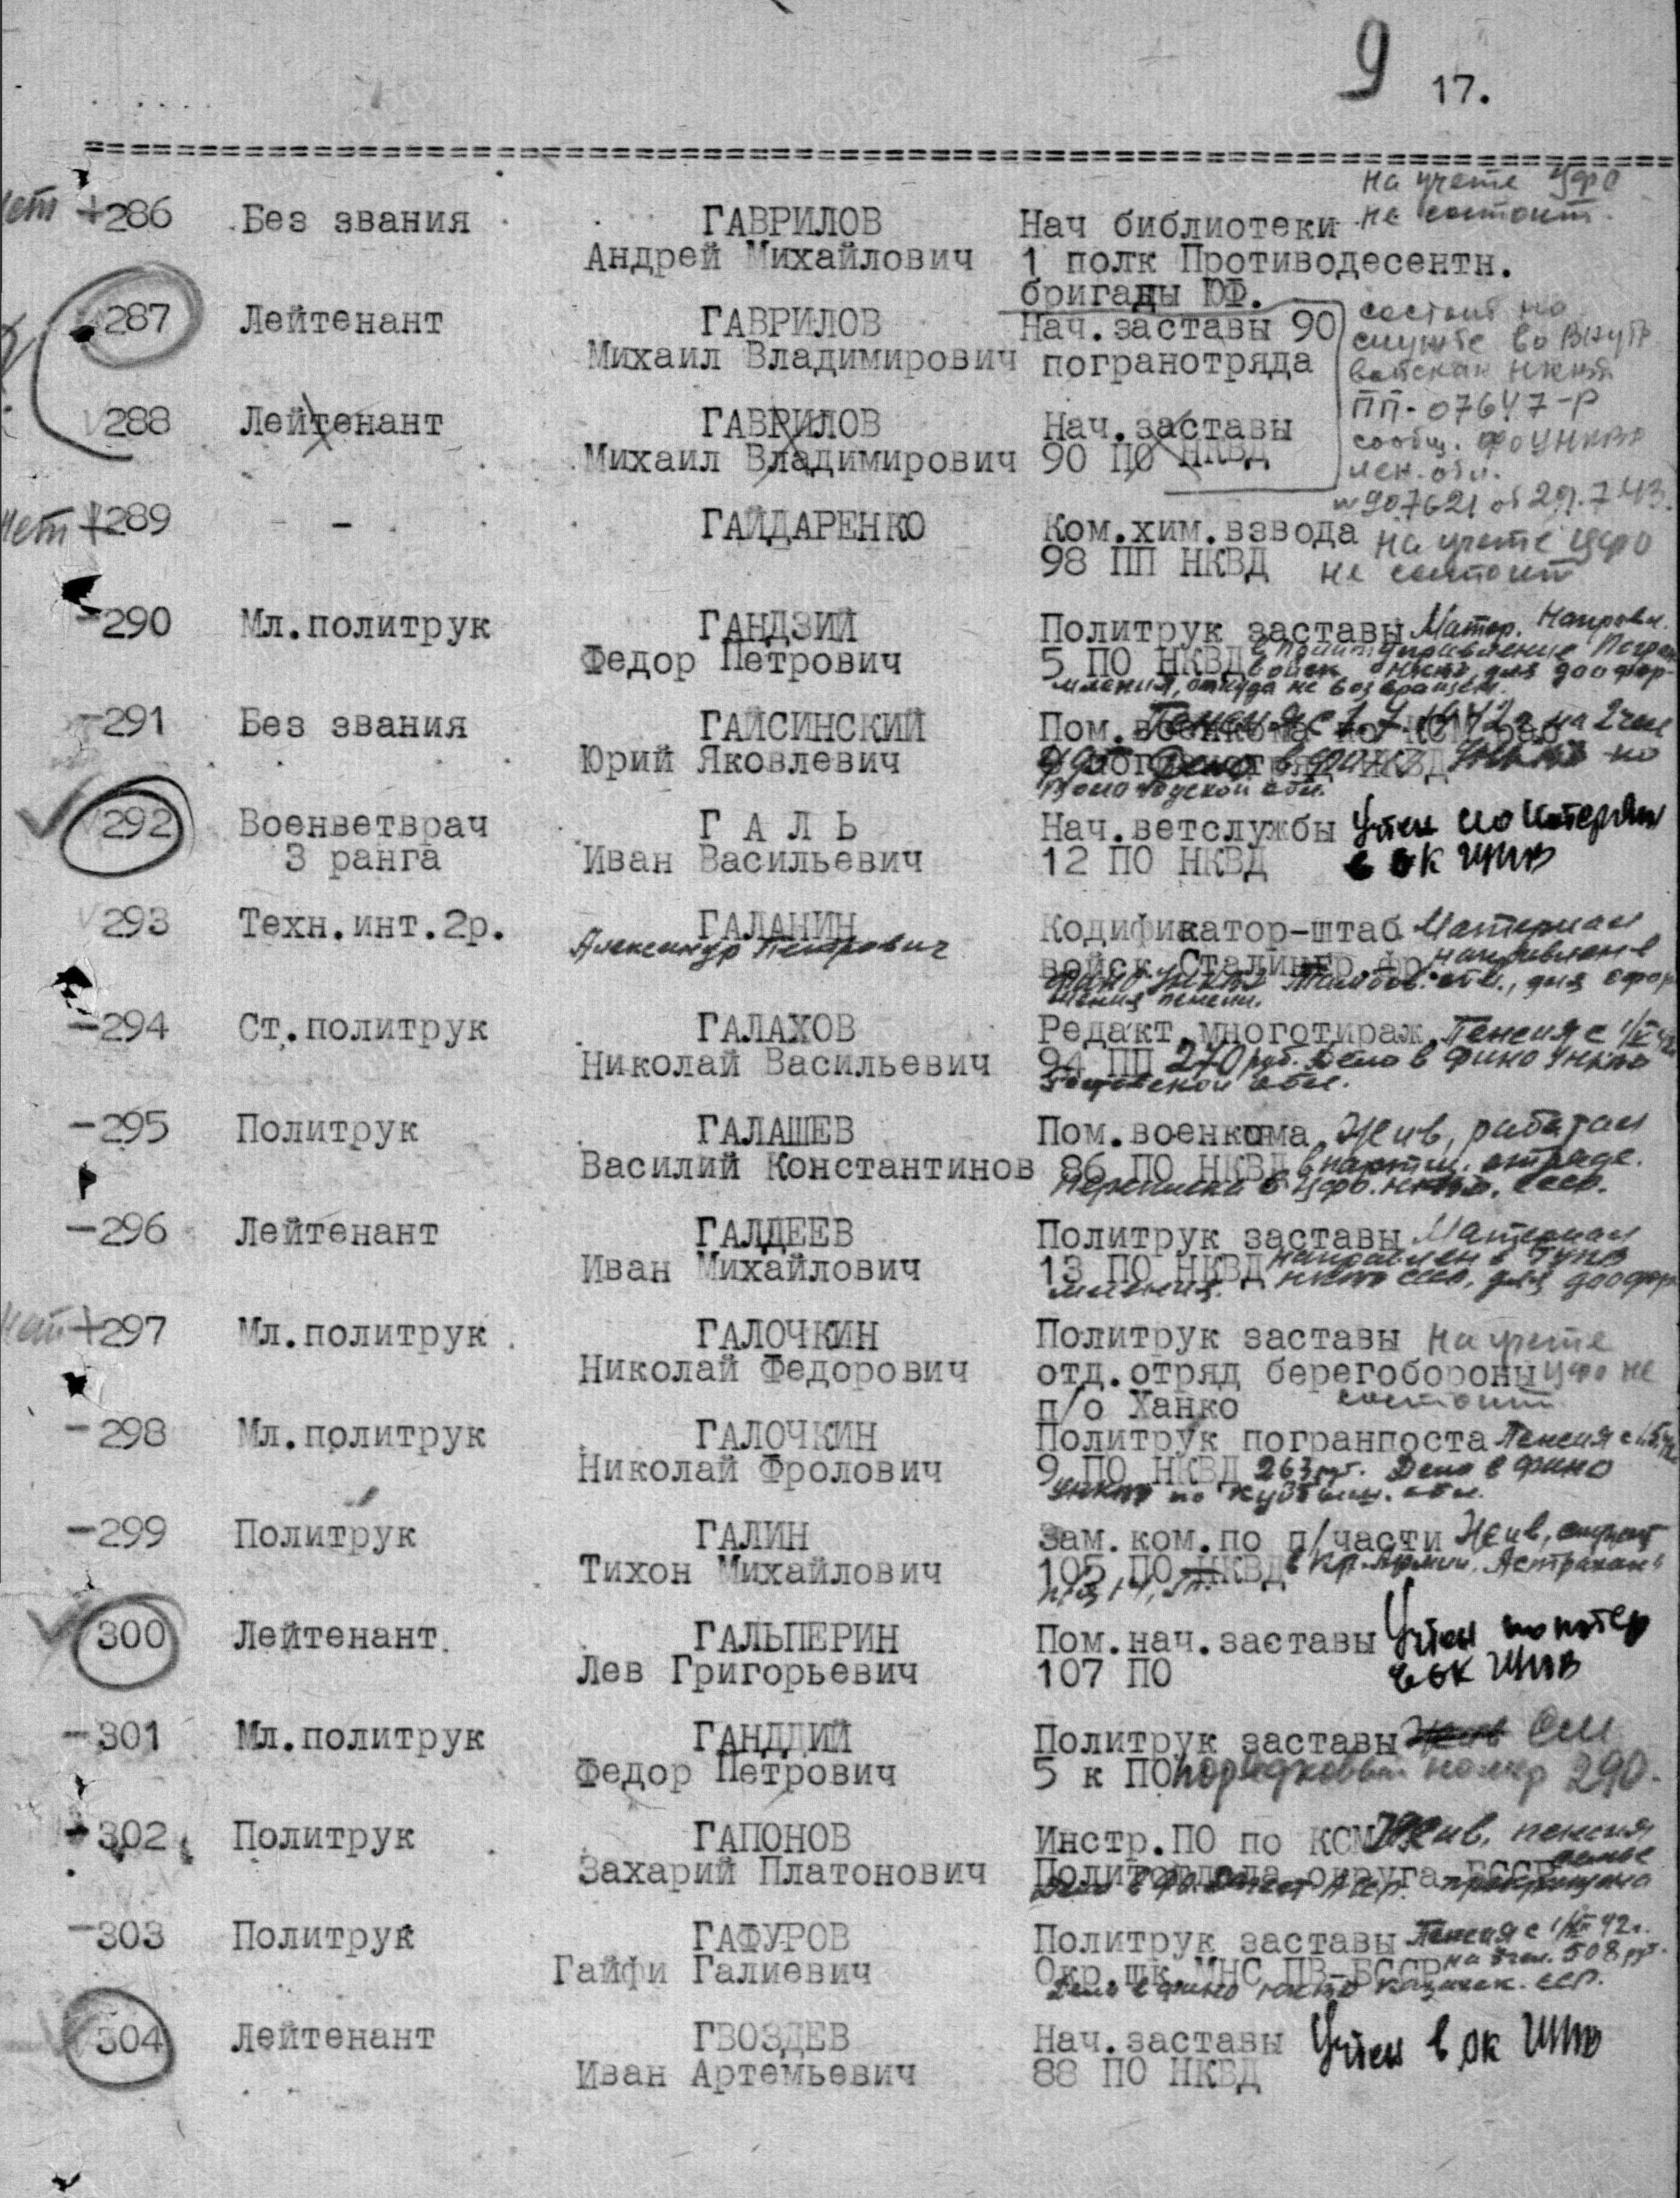 9 17.
на учете ЦФО
нет +286 Без звания ГАВРИЛОВ Нач библиотеки не состоит.
Андрей Михайлович 1 полк Противодесентн.
бригады ЮФ.
287 Лейтенант ГАВРИЛОВ Нач.заставы 90 состоит на
Михаил Владимирович погранотряда службе во внутр
войсках НКВД
ПП-07647-Р
288 Лейтенант ГАВРИЛОВ Нач.заставы
сообщ. ФОУНКВД
Михаил Владимирович 90 ПО НКВД
Лен.обл.
№907621 от 29.7.43.
нет +289 - ГАЙДАРЕНКО Ком.хим.взвода на учете ЦФО
98 ПП НКВД не состоит
-290 Мл.политрук ГАНДЗИЙ Политрук заставы Матер. направл.
Федор Петрович 5 ПО НКВД в политуправление Погран
войск НКВД, для дооформ-
мления, откуда не возвращен.
-291 Без звания ГАЙСИНСКИЙ Пом.военкома по КСМ Пенсия с 1.7.1942 г. на 2 чел
Юрий Яковлевич погранотряд НКВД Дело в ФИНО УНКВД по
Вологодской обл.
292 Военветврач Г А Л Ь Нач.ветслужбы Учтен по потерям
3 ранга Иван Васильевич 12 ПО НКВД в ОК ЦПВ
293 Техн.инт.2р. ГАЛАНИН Кодификатор-штаб Материал
Александр Петрович войск Сталингр.фр. направлен в
ФИНО УНКВД Тамбов. обл., для офор
мления пенсии.
-294 Ст.политрук ГАЛАХОВ Редакт.многотираж. Пенсия с
Николай Васильевич 94 ПП 270 руб. Дело в ФИНО УНКВД
обл.
-295 Политрук ГАЛАШЕВ Пом.военкома Жив, работал
Василий Константинов 86 ПО НКВД в партиз. отряде.
Переписка в ЦФО.НКВД. СССР.
-296 Лейтенант ГАЛДЕЕВ Политрук заставы Материал
Иван Михайлович 13 ПО НКВД направлен в ГУПВ
НКВД СССР, для дооформ
мления.
нет +297 Мл.политрук ГАЛОЧКИН Политрук заставы на учете
Николай Федорович отд.отряд берегобороны ЦФО не
п/о Ханко состоит
-298 Мл.политрук ГАЛОЧКИН Политрук погранпоста Пенсия с
Николай Фролович 9 ПО НКВД 263 руб. Дело в ФИНО
УНКВД по Куйбыш. обл.
-299 Политрук ГАЛИН Зам.ком.по п/части Жив, служит
Тихон Михайлович 105 ПО НКВД в Кр.Армии. Астрахань
300 Лейтенант ГАЛЬПЕРИН Пом.нач.заставы Учтен по потер
Лев Григорьевич 107 ПО в ОК ЦПВ
-301 Мл.политрук ГАНДДИЙ Политрук заставы Жив См
Федор Петрович 5 к ПО порядковый номер 290.
-302 Политрук ГАПОНОВ Инстр.ПО по КСМ Жив, пенсия
Захарий Платонович Политотдела округа БССР семье
Дело в прекращена
-303 Политрук ГАФУРОВ Политрук заставы Пенсия с 42г.
Гайфи Галиевич Окр.шк.МНС ПВ-БССР на чел. 508 руб.
Дело в ФИНО НКВД Казахск. ССР.
304 Лейтенант ГВОЗДЕВ Нач.заставы Учтен в ОК ЦПВ
Иван Артемьевич 88 ПО НКВД